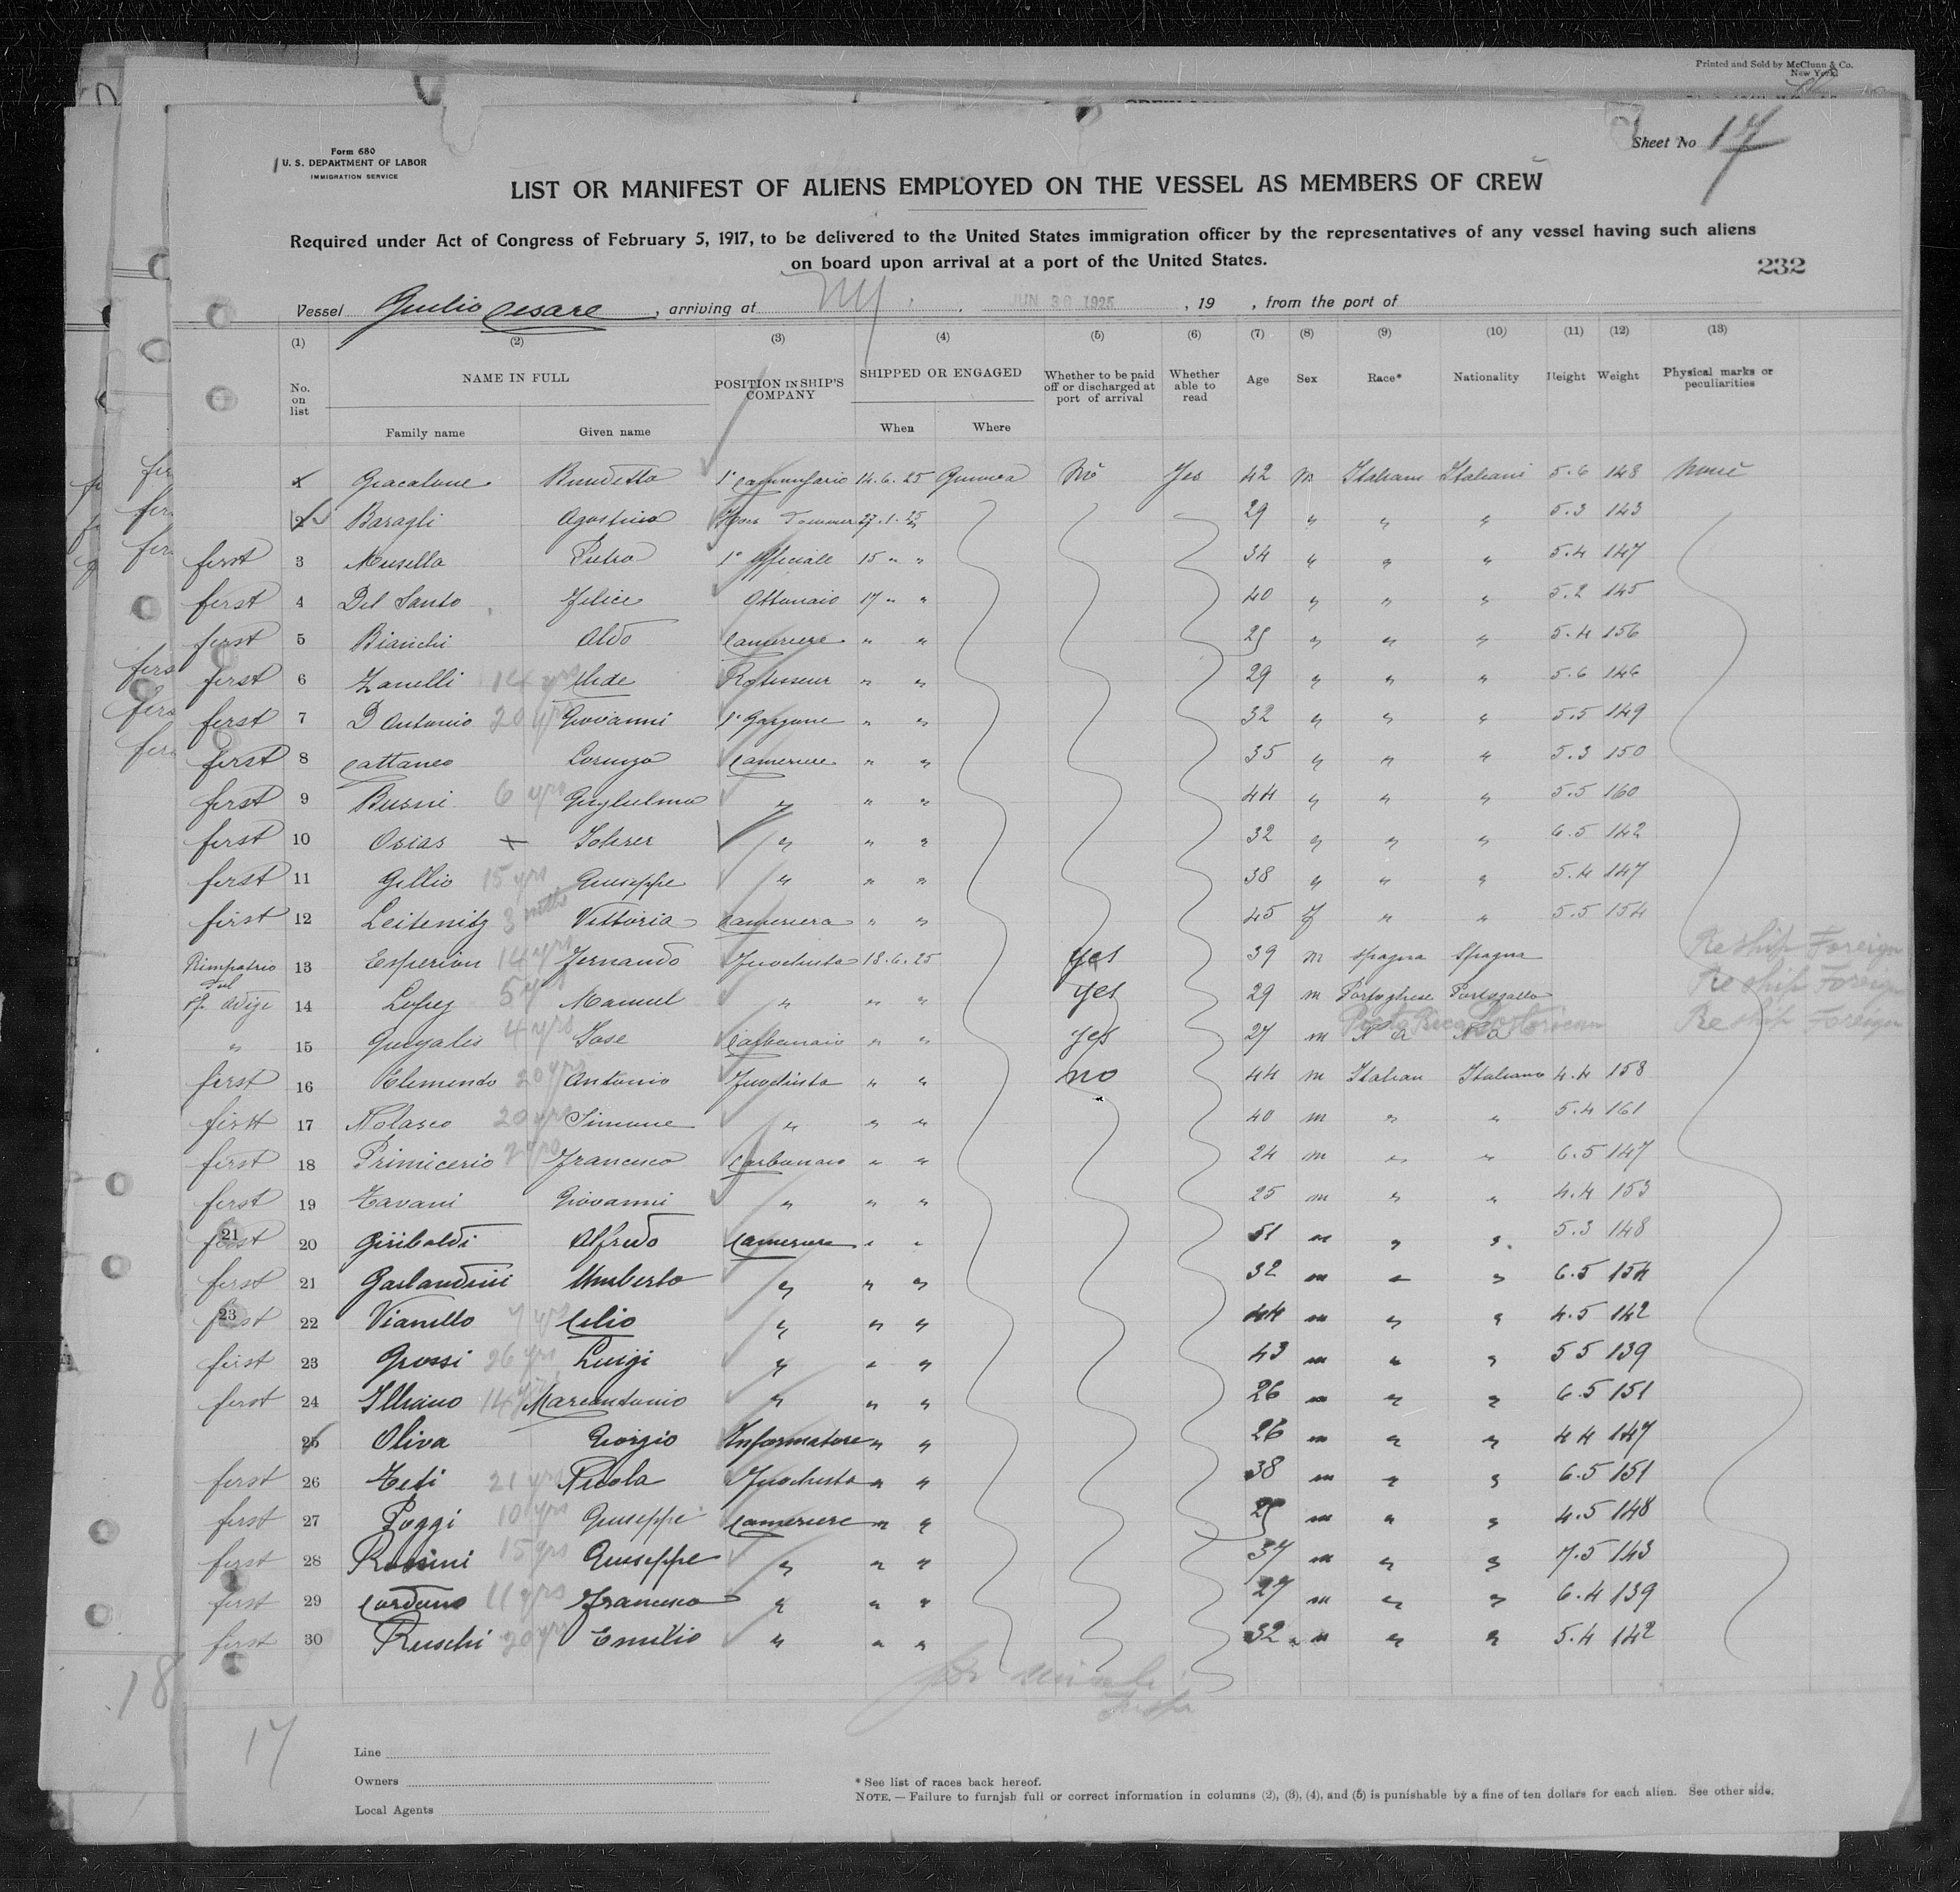 Printed and Sold by McClunn & Co.
New York
Form 680
U. S. DEPARTMENT OF LABOR
IMMIGRATION SERVICE
Sheet No 17
LIST OR MANIFEST OF ALIENS EMPLOYED ON THE VESSEL AS MEMBERS OF CREW
Required under Act of Congress of February 5, 1917, to be delivered to the United States immigration officer by the representatives of any vessel having such aliens
on board upon arrival at a port of the United States.
232
Vessel Giulio Cesare, arriving at NY, JUN 30 1925, 19 , from the port of
(1) (2) (3) (4) (5) (6) (7) (8) (9) (10) (11) (12) (13)
No. on list NAME IN FULL POSITION IN SHIP'S COMPANY SHIPPED OR ENGAGED Whether to be paid off or discharged at port of arrival Whether able to read Age Sex Race* Nationality Height Weight Physical marks or peculiarities
Family name Given name When Where
1 Giacalone 14.6.25 No Yes 42 m Italian Italiani 5.6 148 None
2 Baragli Agostino 27.1.25 29 " " " 5.3 143
first 3 Musella Pietro 1° Officiale 15 " " 34 " " " 5.4 147
first 4 Del Santo Felice Ottonaio 17 " " 40 " " " 5.2 145
first 5 Bianchi Aldo Cameriere " " " " " 5.4 156
first 6 Zanelli 14 yrs " " 29 " " " 5.6 146
first 7 D Antonio 20 yrs Giovanni " " 32 " " " 5.5 149
first 8 Cattaneo Lorenzo Cameriere " " 35 " " " 5.3 150
first 9 Busni 6 yrs Guglielmo " " " 44 " " " 5.5 160
first 10 Osias " " " 32 " " " 6.5 142
first 11 Gellio 15 yrs Giuseppe " " " 38 " " " 5.4 147
first 12 Leitenitz 3 mths Vittoria Cameriera " " 45 f " " 5.5 154
Rimpatrio 13 14 y Fernando Fuochista 13.6.25 yes 39 m Spagna Spagna Reship Foreign
14 Lopez 5 y Manuel " " " yes 29 m Portoghese Portogallo Reship Foreign
" 15 4 yrs Jose Carbonaio " " yes 27 m Porto Rico Reship Foreign
first 16 Clemendo 20 yrs Antonio Fuochista " " no 44 m Italian Italiano 4.4 158
first 17 Nolasco 20 yrs Simone " " " 40 m " " 5.4 161
first 18 Primicerio Francesco Carbonaio " " 24 m " " 6.5 147
first 19 Tavani Giovanni " " " 25 m " " 4.4 153
21
first 20 Giribaldi Alfredo Cameriere " " 51 m " " 5.3 148
first 21 Garlandini Umberto " " " 32 m " " 6.5 154
23
first 22 Vianello 7 yrs Celio " " " 44 m " " 4.5 142
first 23 Grossi 26 yrs Luigi " " " 43 m " " 5 5 139
first 24 Illiano 14 y Marcantonio " " " 26 m " " 6.5 151
25 Oliva Giorgio Informatore " " 26 m " " 4 4 147
first 26 21 yrs Nicola Fuochista " " 38 m " " 6.5 151
first 27 Poggi 10 yrs Giuseppe Cameriere " " m " " 4.5 148
first 28 Rossini 15 yrs Giuseppe " " " 37 m " " 7.5 143
first 29 Cordano 11 yrs Francesco " " " 27 m " " 6.4 139
first 30 Ruschi 20 yrs Emilio " " " 32 m " " 5.4 142
18
17
Line
Owners
Local Agents
* See list of races back hereof.
NOTE. — Failure to furnish full or correct information in columns (2), (3), (4), and (5) is punishable by a fine of ten dollars for each alien. See other side.